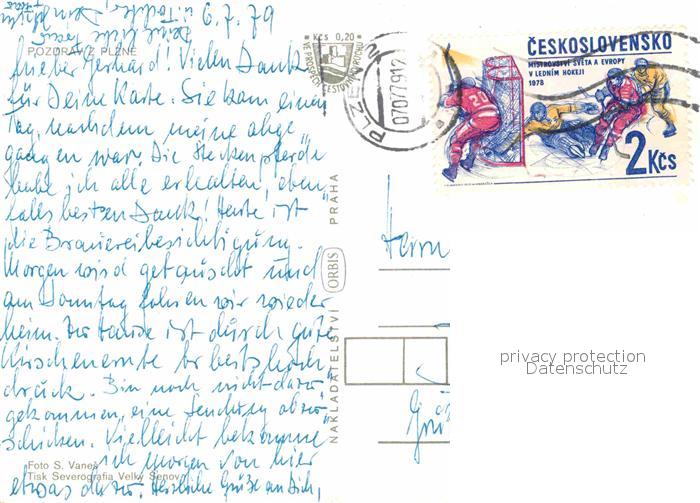 6.7.79
POZDRAV Z PLZNĚ
Lieber Gerhard! Vielen Dank
für Deine Karte. Sie kam einen
Tag, nachdem meine abge-
gangen war. Die Steckenpferde
habe ich alle erhalten, eben-
falls besten Dank! Heute ist
die Brauereibesichtigung.
Morgen wird getauscht und
am Sonntag fahren wir wieder
heim. Zu Hause ist durch gute
Kirschenernte Arbeitshoch-
druck. Bin noch nicht dazu
gekommen, eine Sendung abzu-
schicken. Vielleicht bekomme
ich morgen von hier
etwas dazu. Herzliche Grüße an Dich,
Foto S. Vaneš
Tisk Severografia Velký Šenov
NAKLADATELSTVÍ ORBIS PRAHA
Kčs 0,20
PLZEŇ
ČESKOSLOVENSKO
MISTROVSTVÍ SVĚTA A EVROPY
V LEDNÍM HOKEJI
1978
20
2 Kčs
Herrn
privacy protection
Datenschutz